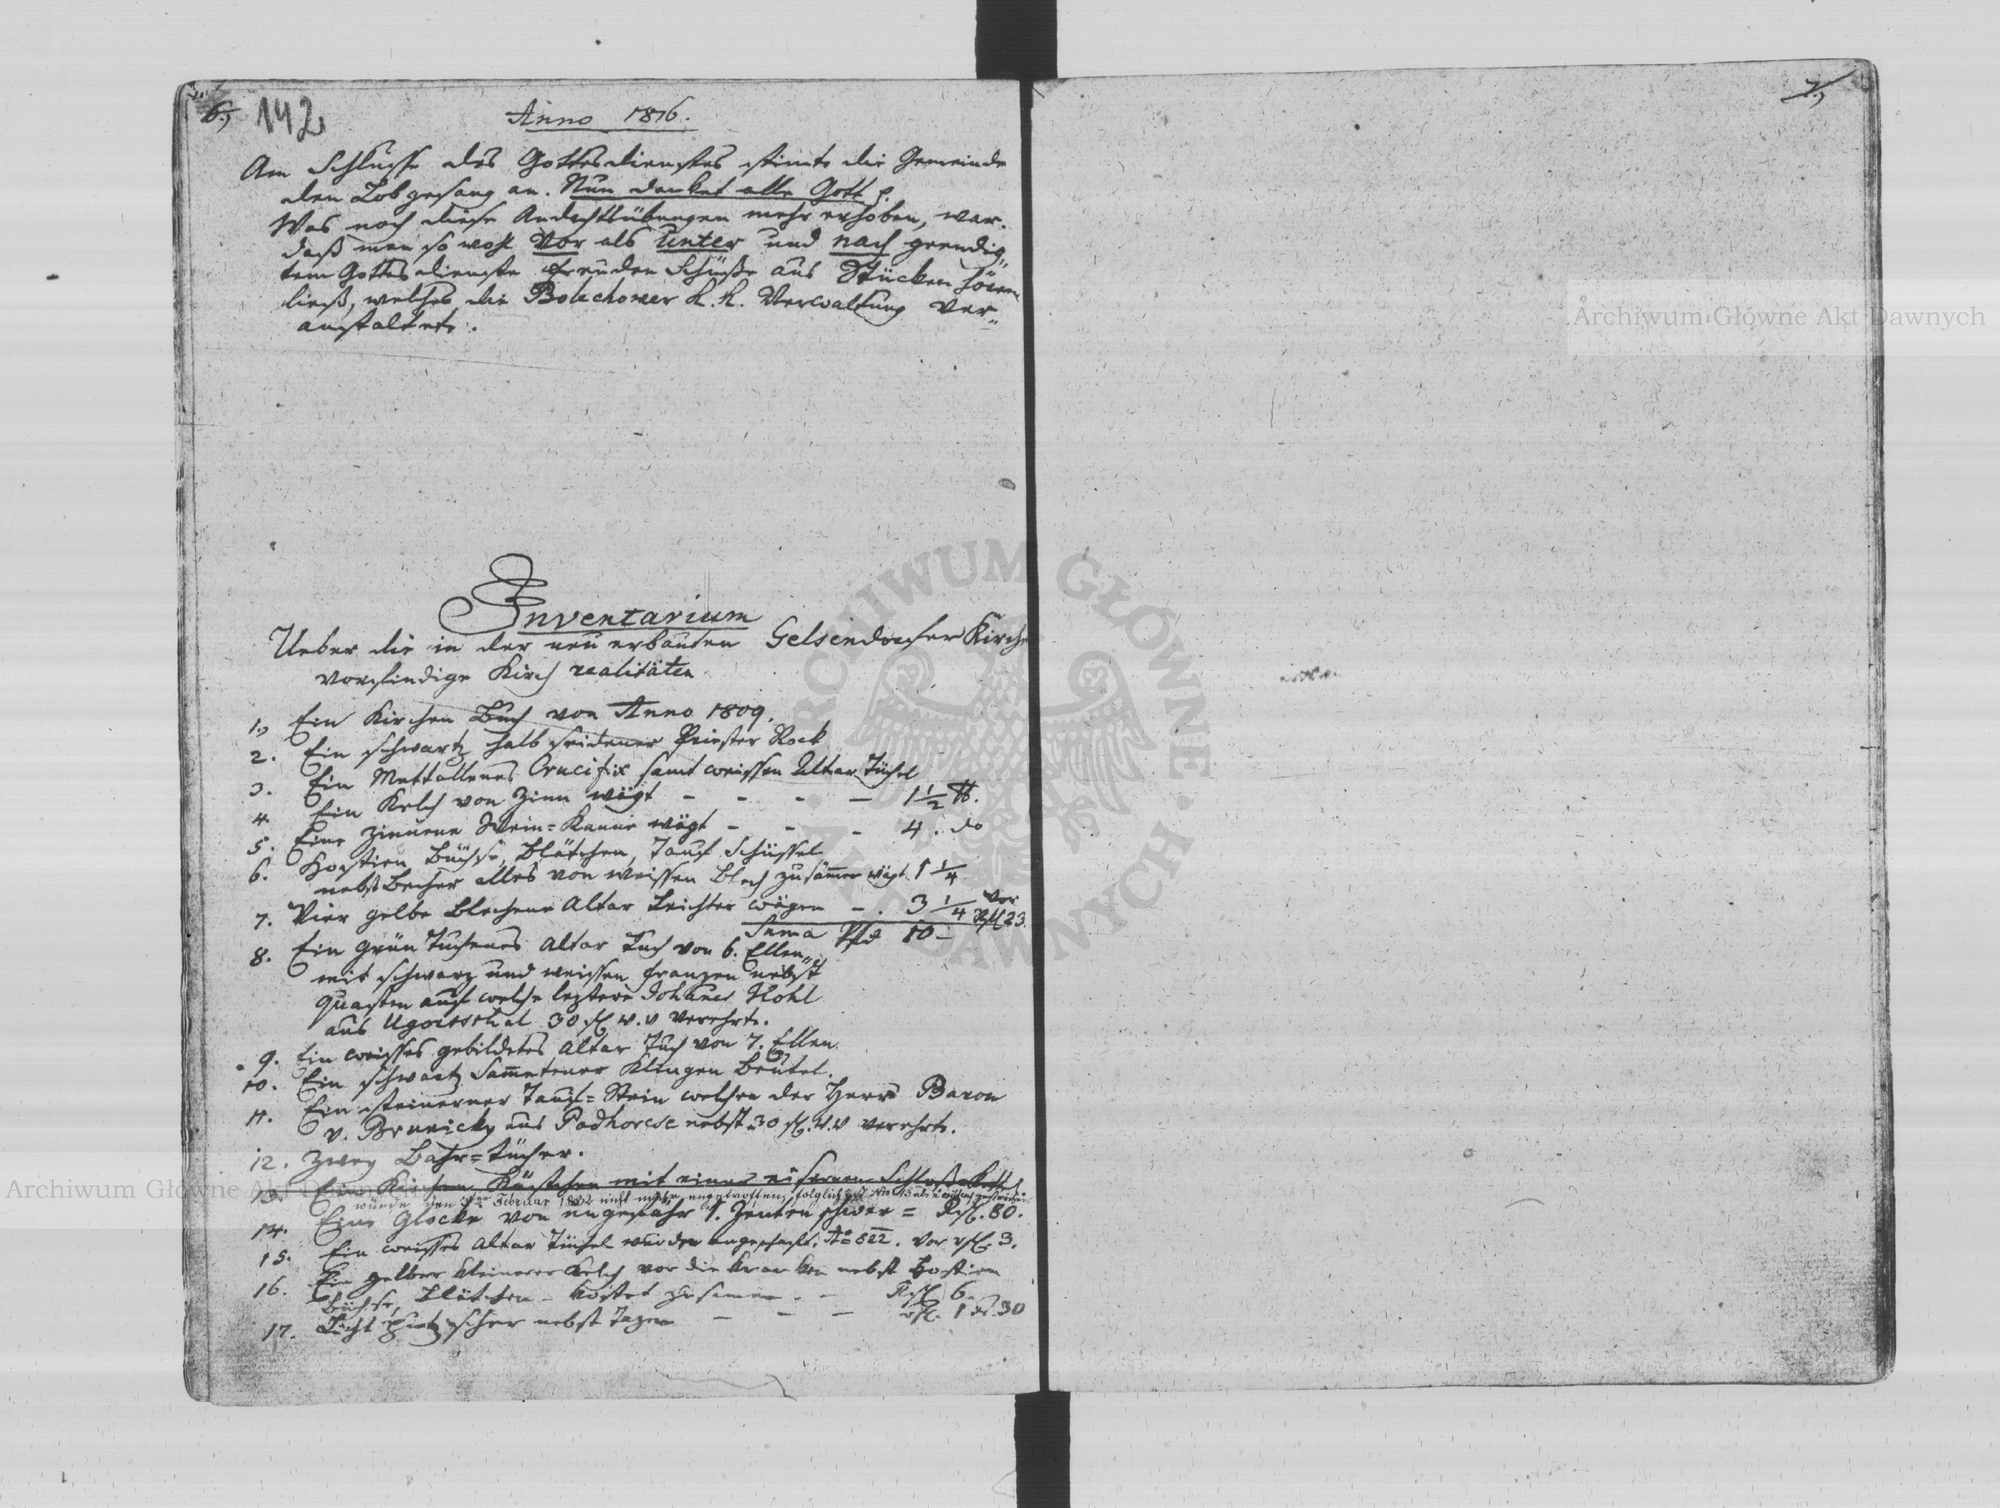 6.) 142
Anno 1816.
7.)
Am Schlusse des Gottesdienstes stimte die Gemeinde
den Lobgesang an. Nun danket alle Gott p.
Was noch diese Andachtsübungen mehr erhoben, war,
daß man so wohl Vor als Unter und nach geendig„
tem Gottesdienste Freuden Schüsse aus Stücken hören
ließ, welches die Bolechower k. k. Verwaltung ver„
anstaltete.
Inventarium
Ueber die in der neu erbauten Gelsendorfer Kirche
vorfindige Kirch realitäten
1.) Ein Kirchen Buch von Anno 1809.
2. Ein schwartz halb seidener Priester Rock
3. Ein Mettallenes Crucifix samt weissen Altar Tüchel
4. Ein Kelch von Zinn wägt - - - - 1 1/2 ℔.
5. Eine Zinnene Wein-Kanne wägt - - - 4. do
6. Hostien Büchse, Blätchen, Tauf Schüssel
nebst Becher alles von weissen Blech zusammen wägt 1 1/4
7. Vier gelbe Blechene Altar Leichter wägen - . 3 1/4 vor Rfl 23.
Suma Pfd 10 -
8. Ein Grün Tuchenes Altar Tuch von 6. Ellen„
mit schwarz und weissen Franzen nebst
Quasten auf welche leztere Johannes Hohl
aus Ugartsthal 30 fl w. w verehrte.
9. Ein weisses gebildetes Altar Tuch von 7. Ellen.
10. Ein schwartz Sammetener Klingen Beutel.
11. Ein steinerner Tauf-Stein welchen der Herr Baron
v. Brunicky aus Podhorce nebst 30 fl. W. W verehrte.
12. Zwey Bahr-Tücher.
13. Ein Kirchen Kästchen mit einer eisernen Schloß
wurde den Februar 1832 nicht mehr angetroffen, folglich
14. Eine Glocke von ungefähr 1. Zenten schwer = Rfl. 80.
15. Ein weisses Altar Tüchel wurden angeschaft. Ao 822. vor rfl. 3.
16. Ein gelber kleinerer Kelch vor die Kranken nebst Hostien
Büchse, Blätchen - kostet zusamen . - Rfl 6.
17. Licht Putz scher nebst Tazen - - - rfl. 1 30
Archiwum Główne Akt Dawnych
Archiwum Główne Akt Dawnych
ARCHIWUM GŁÓWNE · AKT DAWNYCH ·